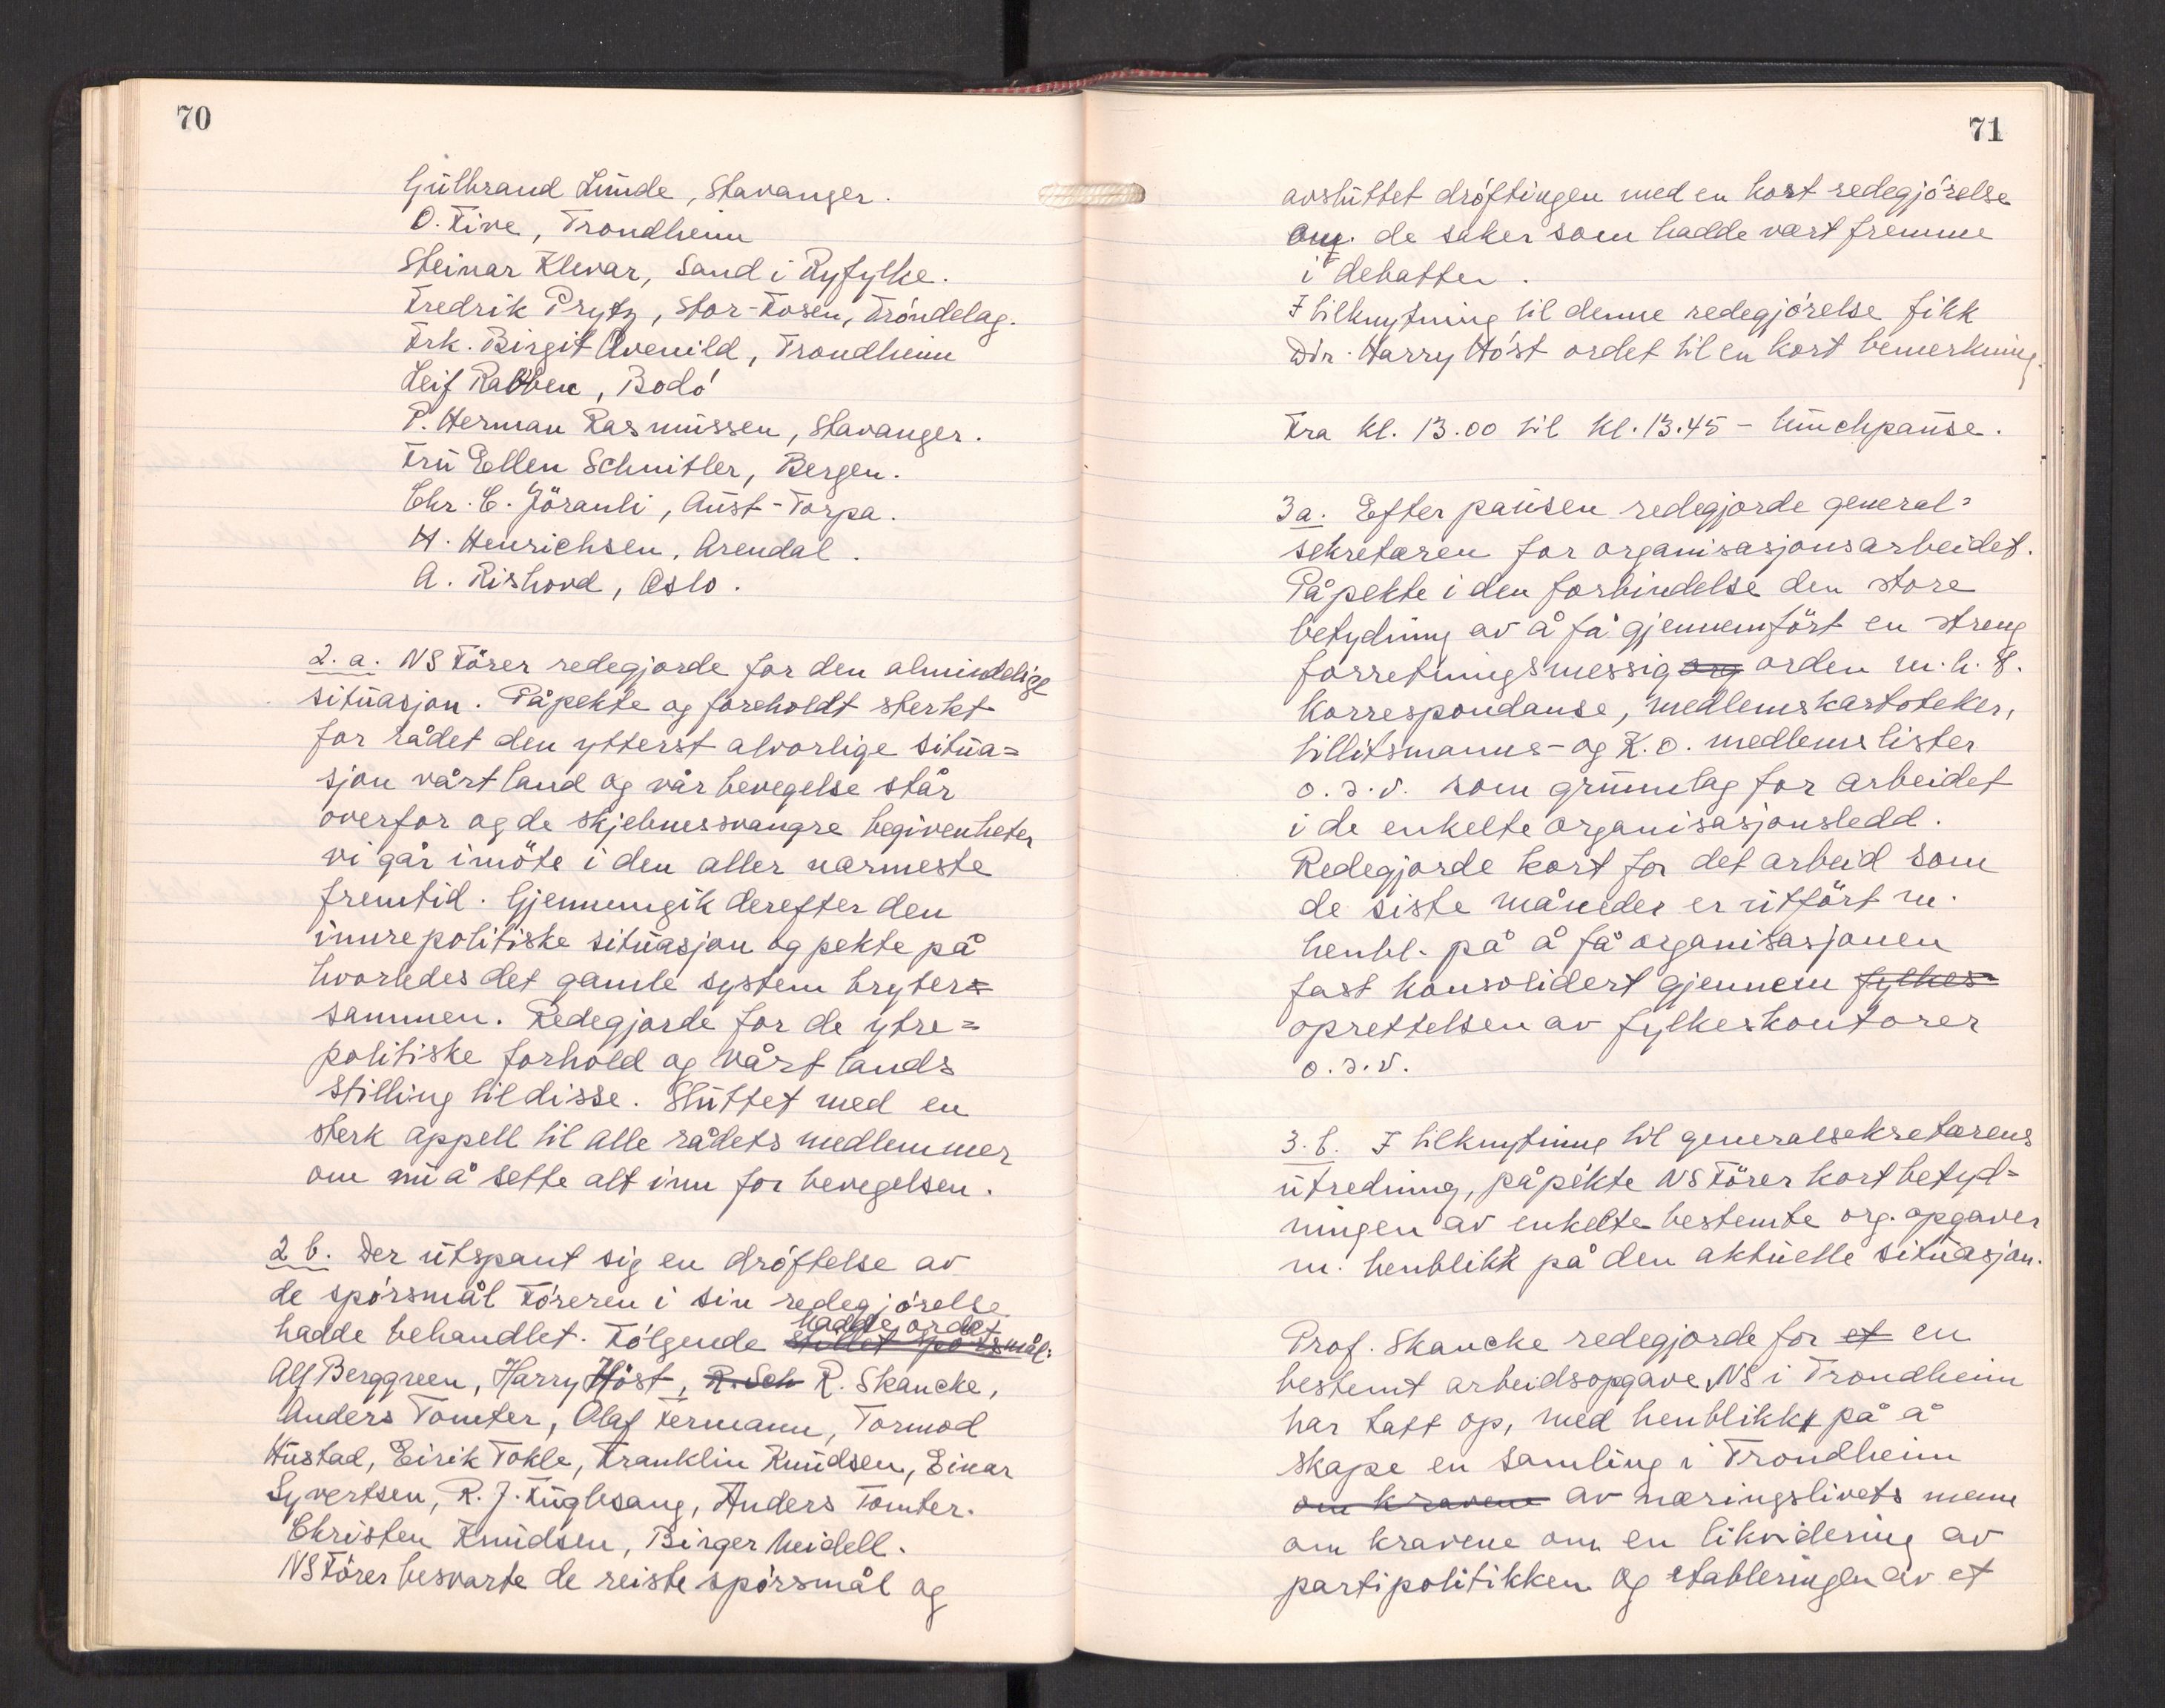 70
Gulbrand Lunde, Stavanger.
O. Five, Trondheim
Steinar Klevar, Sand i Ryfylke.
Fredrik Prytz, Stor-Fosen, Tróndelag.
Frk. Birgit Avenild, Trondheim
Leif Rabben, Bodó
P. Herman Rasmussen, Stavanger.
Fru Ellen Schnitler, Bergen.
Chr. C. Jöranli, Aust-Torpa.
H. Henrichsen, Arendal.
A. Rishovd, Oslo.
2. a. NS Förer redegjorde for den almindelige
situasjon. Påpekte og foreholdt sterkt
for rådet den ytterst alvorlige situa=
sjon vårt land og vår bevegelse står
overfor og de skjebnessvangre begivenheter
vi går imöte i den aller nærmeste
fremtid. Gjennemgik derefter den
inнrepolitiske situasjon og pekte på
hvorledes det gamle system bryter=
sammen. Redegjorde for de ytre=
politiske forhold og vårt lands
stilling til disse. Sluttet med en
sterk appell til alle rådets medlemmer
om nu å sette alt inn for bevegelsen.
2 b. Der utspant sig en dróftelse av
de spórsmål Fóreren i sin redegjórelse
hadde ordet
hadde behandlet. Fólgende stillet spórsmål:
Alf Berggreen, Harry Höst, R. Sch R. Skancke,
Anders Tomter, Olaf Fermann, Tormod
Hustad, Eirik Tokle, Franklin Knudsen, Einar
Syvertsen, R. J. Fuglesang, Anders Tomter.
Christen Knudsen, Birger Meidell.
NS Fórer besvarte de reiste spórsmål og
71
avsluttet dróftingen med en kort redegjórelse
ang. de saker som hadde vært fremme
i debatten.
I tilknytning til denne redegjórelse fikk
Dir. Harry Hóst ordet til en kort bemerkning.
Fra kl. 13.00 til kl. 13.45 - lunchpause.
3 a. Efter pausen redegjorde general=
sekretæren for organisasjonsarbeidet.
Påpekte i den forbindelse den store
betydning av å få gjennemfört en streng
forretningsmessig org orden m.h.t.
korrespondanse, medlemskartoteker,
tillitsmanns- og K.O. medlemslister
o.s.v. som grunnlag for arbeidet
i de enkelte organisasjonsledd.
Redegjorde kort for det arbeid som
de siste måneder er utfört m.
henbl. på å få organisasjonen
fast konsolidert gjennem fylkes=
oprettelsen av fylkeskontorer
o.s.v.
3. b. I tilknytning til generalsekretærens
utredning, påpekte NS Förer kort betyd=
ningen av enkelte bestemte org. opgaver
m. henblikk på den aktuelle situasjon.
Prof. Skancke redegjorde for et en
bestemt arbeidsopgave NS i Trondheim
har tatt op, med henblikk på å
skape en samling i Trondheim
om kravene av næringslivets menn
om kravene om en likvidering av
partipolitikken og etableringen av et